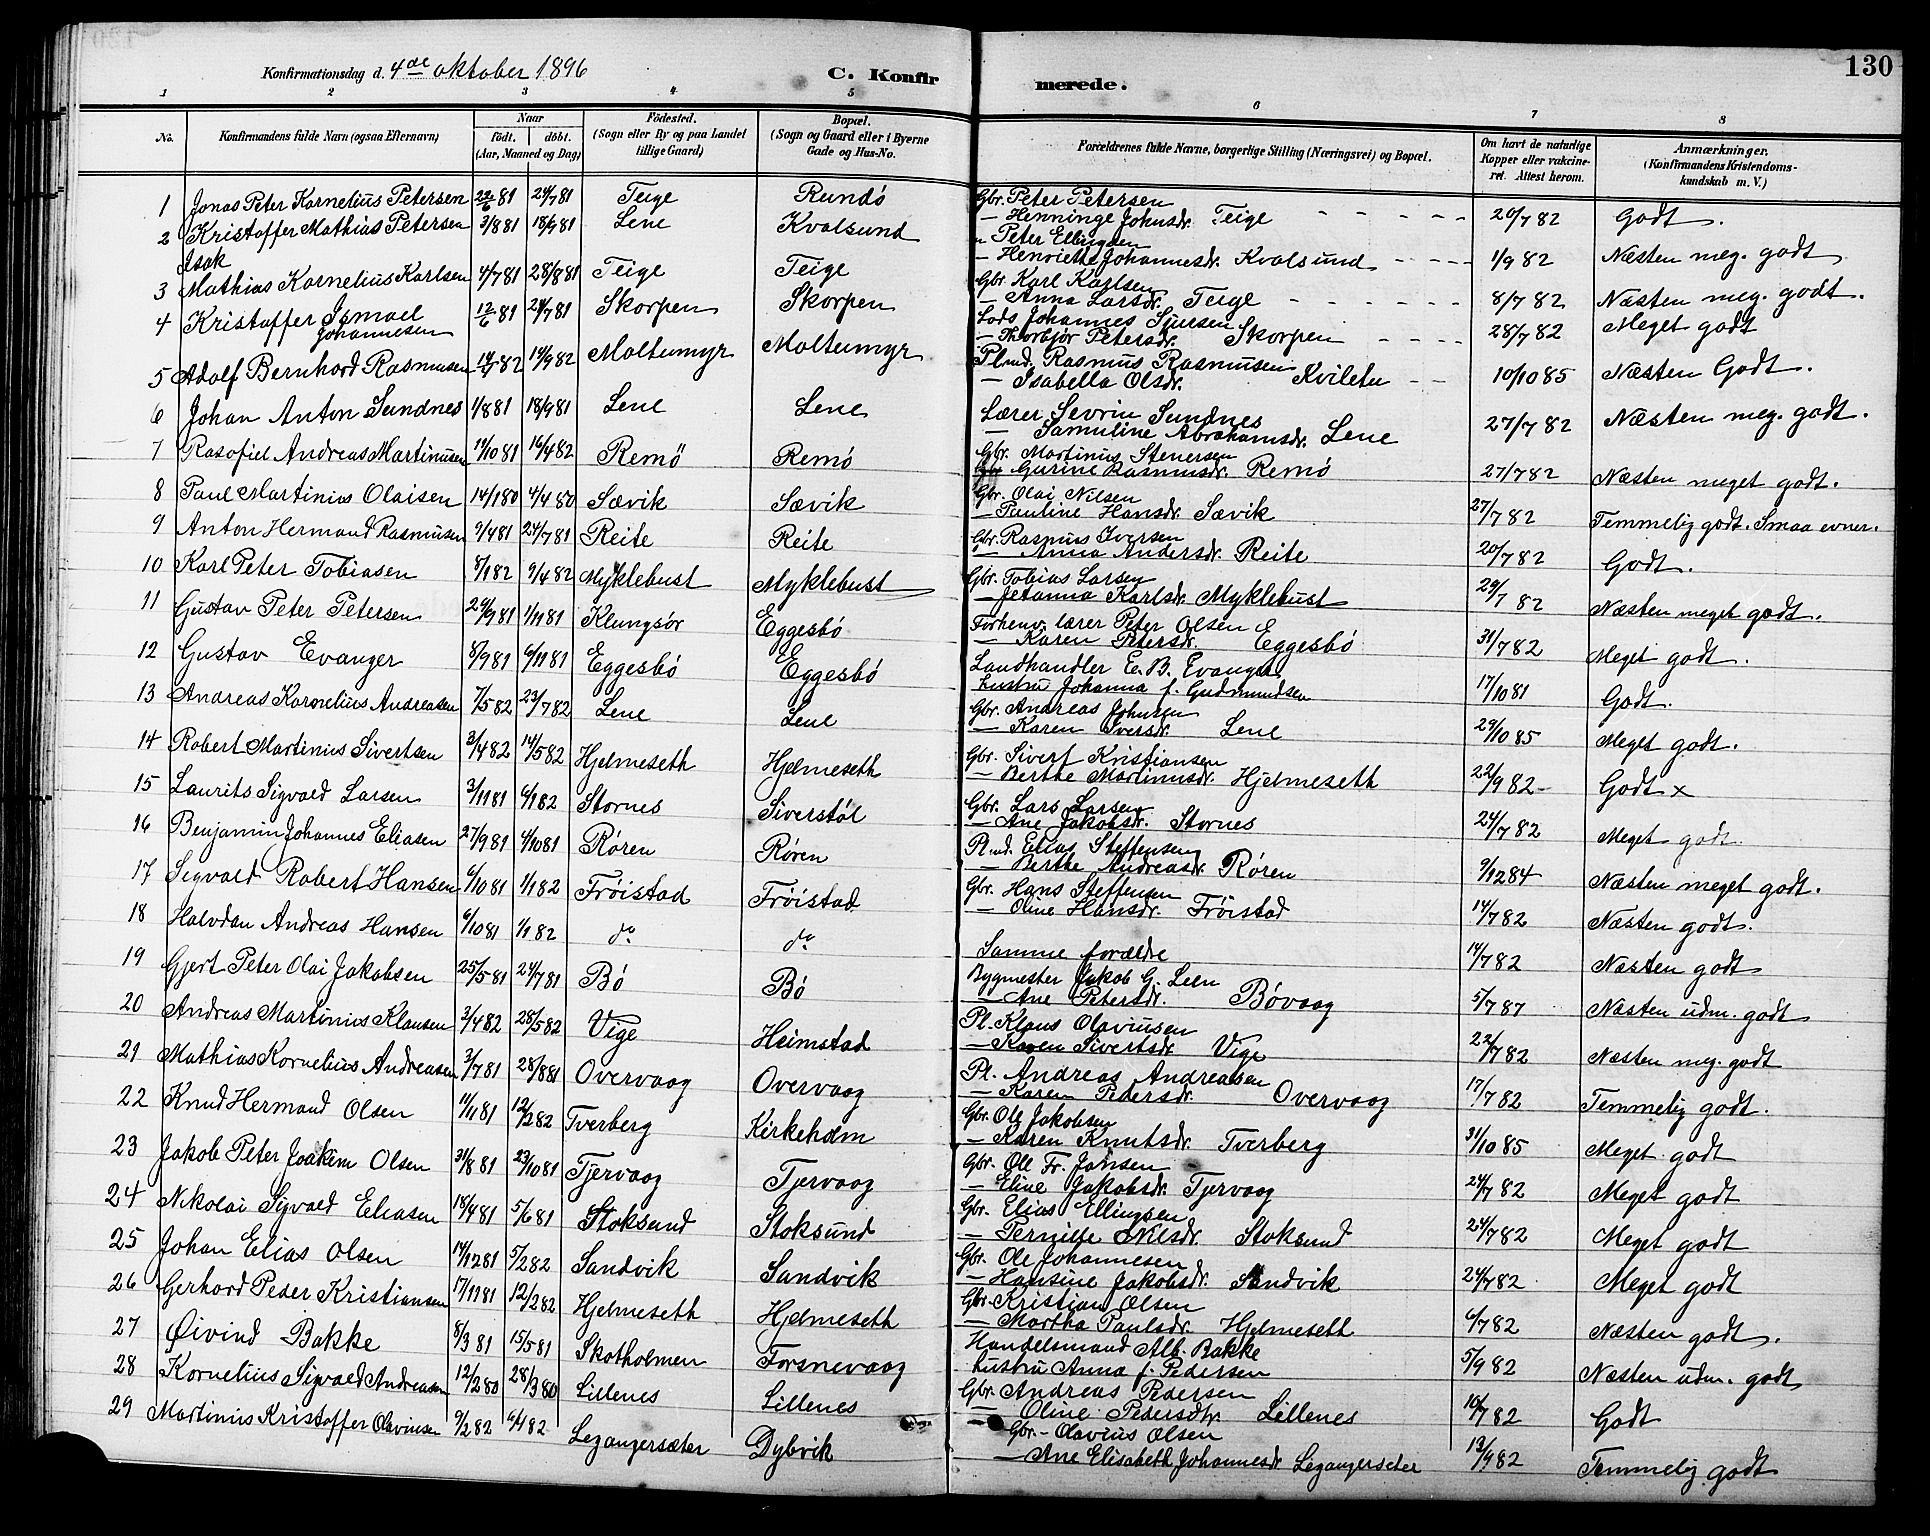 130
Konfirmationsdag d. 4de oktober 1896 C. Konfirmerede.
1 2 3 4 5 6 7 8
No. Konfirmandens fulde Navn (ogsaa Efternavn) Naar födt. döbt. (Aar, Maaned og Dag) Födested. (Sogn eller By og paa Landet tillige Gaard) Bopæl. (Sogn og Gaard eller i Byerne Gade og Hus-No. Forældrenes fulde Navne, borgerlige Stilling (Næringsvei) og Bopæl. Om havt de naturlige Kopper eller vakcineret. Attest herom. Anmærkninger. (Konfirmandens Kristendomskundskab m. V.)
1 Jonas Peter Kornelius Petersen 22/6 81 24/7 81 Teige Rundö Gbr. Peter Petersen
– Henninge Johnsdr. Teige 20/7 82 Godt.
2 Kristoffer Mathias Petersen 3/8 81 18/9 81 Lene Kvalsund " Peter Ellingsen
– Henriette Johannesdr. Kvalsund 1/9 82 Næsten meg. godt
3 Isak Mathias Kornelius Karlsen 4/7 81 28/8 81 Teige Teige Gbr. Karl Karlsen
– Anna Larsdr. Teige 8/7 82 Næsten meg. godt.
4 Kristoffer Ismael Johannesen 12/6 81 24/7 81 Skorpen Skorpen Lods Johannes Sjursen
– Thorbjør Petersdr. Skorpen 28/7 82 Meget godt
5 Adolf Bernhard Rasmusen 14/7 82 17/9 82 Moltumyr Moltumyr Plmd. Rasmus Rasmusen
– Isabella Olsdr. Kviletu 10/10 85 Næsten Godt.
6 Johan Anton Sundnes 1/8 81 18/9 81 Lene Lene Lærer Sevrin Sundnes
– Samuline Abrahamsdr. Lene 27/7 82 Næsten meg. godt.
7 Rasofiel Andreas Martinusen 14/10 81 16/4 82 Remö Remö Gbr. Martinus Stenersen
Gurine Rasmusdr. Remö 27/7 82 Næsten meget godt.
8 Paul Martinius Olaisen 14/1 80 4/4 80 Sævik Sævik Gbr. Olai Nilsen
– Pauline Hansdr. Sævik 27/7 82 Temmelig godt. Smaa evner.
9 Anton Hermand Rasmusen 9/4 81 24/7 81 Reite Reite Gbr. Rasmus Iversen
– Anna Andersdr. Reite 20/7 82 Godt.
10 Karl Peter Tobiasen 8/1 82 9/4 82 Myklebust Myklebust Gbr. Tobias Larsen
– Jetanna Karlsdr. Myklebust 29/7 82 Næsten meget godt.
11 Gustav Peter Petersen 24/9 81 1/11 81 Klungsör Eggesbö Forhenv. lærer Peter Olsen
– Karen Petersdr. Eggesbö 31/7 82 Meget godt.
12 Gustav Evanger 8/9 81 6/11 81 Eggesbö Eggesbö Landhandler E. B. Evanger
hustru Johanna f. Gudmundsen 17/10 81 Godt.
13 Andreas Kornelius Andreasen 7/5 82 23/7 82 Lene Lene Gbr. Andreas Johnsen
– Karen Iversdr. Lene 29/10 85 Meget godt.
14 Robert Martinius Sivertsen 3/4 82 14/5 82 Hjelmeseth Hjelmeseth Gbr. Sivert Kristiansen
– Berthe Martinusdr. Hjelmeseth 22/9 82 – Godt x
15 Laurits Sigvald Larsen 3/11 81 6/1 82 Stornes Siverstöl Gbr. Lars Larsen
– Ane Jakobsdr. Stornes 24/7 82 Meget godt.
16 Benjamin Johannes Eliasen 27/9 81 4/10 81 Rören Rören Plmd. Elias Steffensen
– Berthe Andreasdr. Rören 9/12 84 Næsten meget godt.
17 Sigvald Robert Hansen 6/10 81 1/1 82 Fröistad Fröistad Gbr. Hans Steffensen
– Oline Hansdr. Fröistad 14/7 82 Næsten godt.
18 Halvdan Andreas Hansen 6/10 81 1/1 82 do do Samme forældre 14/7 82 Næsten godt
19 Gjert Peter Olai Jakobsen 25/5 81 24/7 81 Bö Bö Bygmester Jakob G. Leen
– Ane Petersdr. Bövaag 5/7 87 Næsten udm. godt
20 Andreas Martinius Klausen 3/4 82 28/5 82 Vige Heimstad Pl. Klaus Olaviusen
– Karen Sivertsdr. Vige 22/7 82 Næsten meg. godt
21 Mathias Kornelius Andreasen 3/7 81 28/8 81 Overvaag Overvaag Pl. Andreas Andreasen
– Karen Pedersdr. Overvaag 17/7 82 Temmelig godt.
22 Knud Hermand Olsen 14/11 81 12/2 82 Tverberg Kirkeholm Gbr. Ole Jakobsen
– Karen Knutsdr. Tverberg 31/10 85 Meget godt
23 Jakob Peter Joakim Olsen 31/8 81 23/10 81 Tjervaag Tjervaag Gbr. Ole Fr. Jansen
– Eline Jakobsdr. Tjervaag 24/7 82 Meget godt
24 Nikolai Sigvald Eliasen 18/4 81 5/6 81 Stoksund Stoksund Gbr. Elias Ellingsen
– Pernille Nilsdr. Stoksund 24/7 82 Meget godt
25 Johan Elias Olsen 14/12 81 5/2 82 Sandvik Sandvik Gbr. Ole Johannesen
– Hansine Jakobsdr. Sandvik 24/7 82 Meget godt
26 Gerhard Peder Kristiansen 17/11 81 12/2 82 Hjelmeseth Hjelmeseth Gbr. Kristian Olsen
– Martha Paulsdr. Hjelmeseth 6/7 82 Næsten godt.
27 Öivind Bakke 8/3 81 15/5 81 Skotholmen Forsnevaag Handelsmand Alb. Bakke
hustru Anna f. Pedersen 5/9 82 Næsten udm. godt
28 Kornelius Sigvald Andreasen 12/2 80 28/3 80 Lillenes Lillenes Gbr. Andreas Pedersen
– Oline Pedersdtr. Lillenes 10/7 82 Godt
29 Martinus Kristoffer Olaviusen 9/2 82 6/4 82 Legangersæter Dybvik Gbr. – Olavius Olsen
– Ane Elisabeth Johannesdr Legangersæter 13/9 82 Temmelig godt